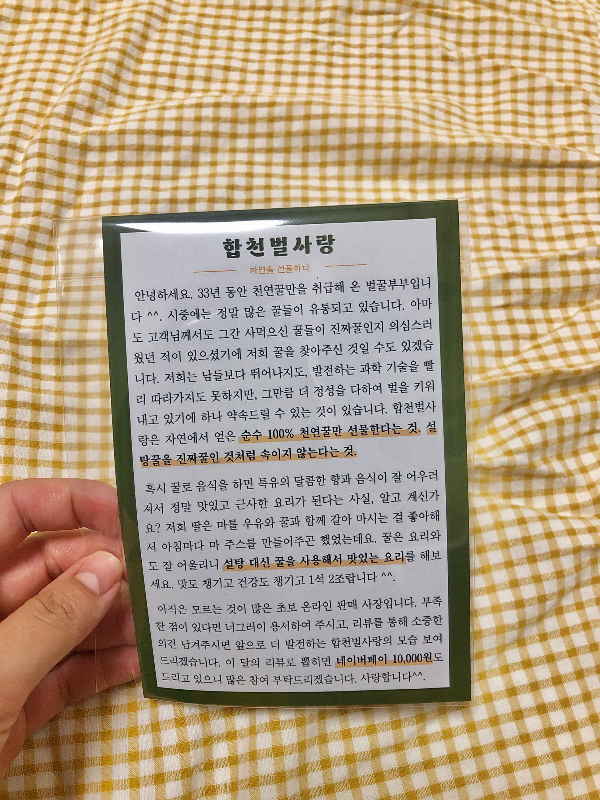 합천벌사랑
자연을 선물하다
안녕하세요. 33년 동안 천연꿀만을 취급해 온 벌꿀부부입니
다 ^^. 시중에는 정말 많은 꿀들이 유통되고 있습니다. 아마
도 고객님께서도 그간 사먹으신 꿀들이 진짜꿀인지 의심스러
웠던 적이 있으셨기에 저희 꿀을 찾아주신 것일 수도 있겠습
니다. 저희는 남들보다 뛰어나지도, 발전하는 과학 기술을 빨
리 따라가지도 못하지만, 그만큼 더 정성을 다하여 벌을 키워
내고 있기에 하나 약속드릴 수 있는 것이 있습니다. 합천벌사
랑은 자연에서 얻은 순수 100% 천연꿀만 선물한다는 것, 설
탕꿀을 진짜꿀인 것처럼 속이지 않는다는 것.
혹시 꿀로 음식을 하면 특유의 달콤한 향과 음식이 잘 어우러
져서 정말 맛있고 근사한 요리가 된다는 사실, 알고 계신가
요? 저희 딸은 마를 우유와 꿀과 함께 갈아 마시는 걸 좋아해
서 아침마다 마 주스를 만들어주곤 했었는데요. 꿀은 요리와
도 잘 어울리니 설탕 대신 꿀을 사용해서 맛있는 요리를 해보
세요. 맛도 챙기고 건강도 챙기고 1석 2조랍니다 ^^.
아직은 모르는 것이 많은 초보 온라인 판매 사장입니다. 부족
한 점이 있다면 너그러이 용서하여 주시고, 리뷰를 통해 소중한
의견 남겨주시면 앞으로 더 발전하는 합천벌사랑의 모습 보여
드리겠습니다. 이 달의 리뷰로 뽑히면 네이버페이 10,000원도
드리고 있으니 많은 참여 부탁드리겠습니다. 사랑합니다^^.